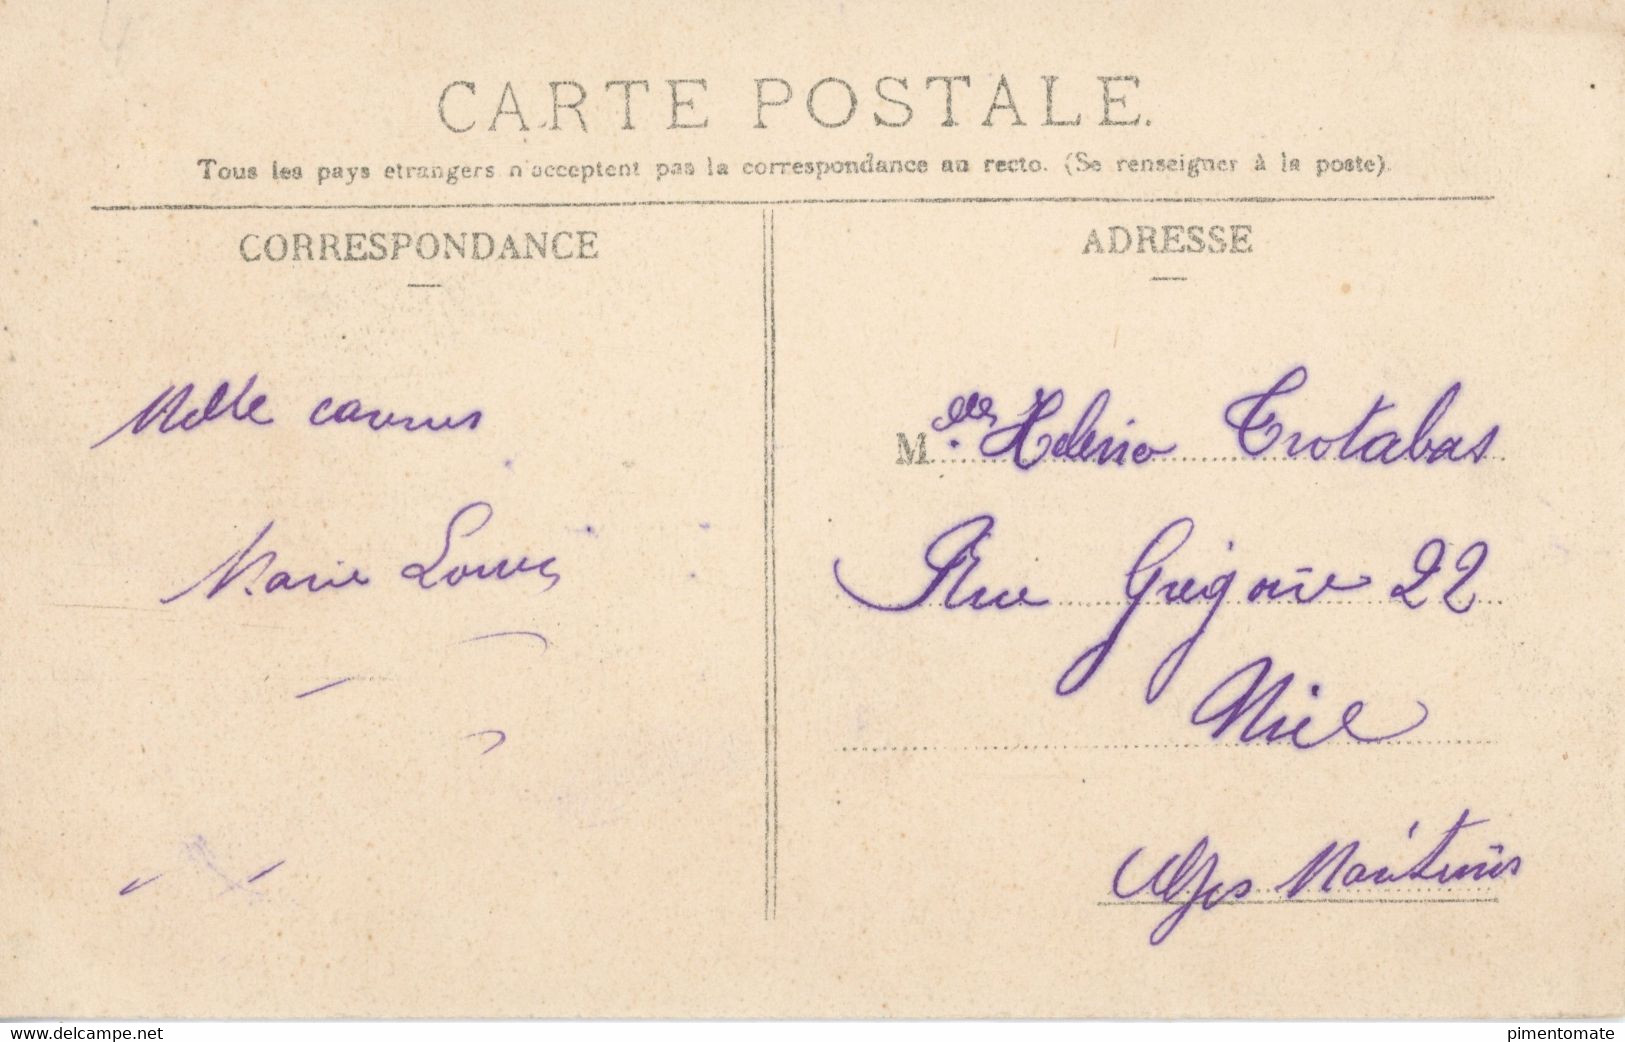 CARTE POSTALE.
Tous les pays etrangers n'acceptent pas la correspondance au recto. (Se renseigner à la poste).
CORRESPONDANCE
Mille
Marie Louise
ADRESSE
M Trotabas
Rue Grégoire 22
Nice
Alpes Maritimes
www.delcampe.net
pimentomate